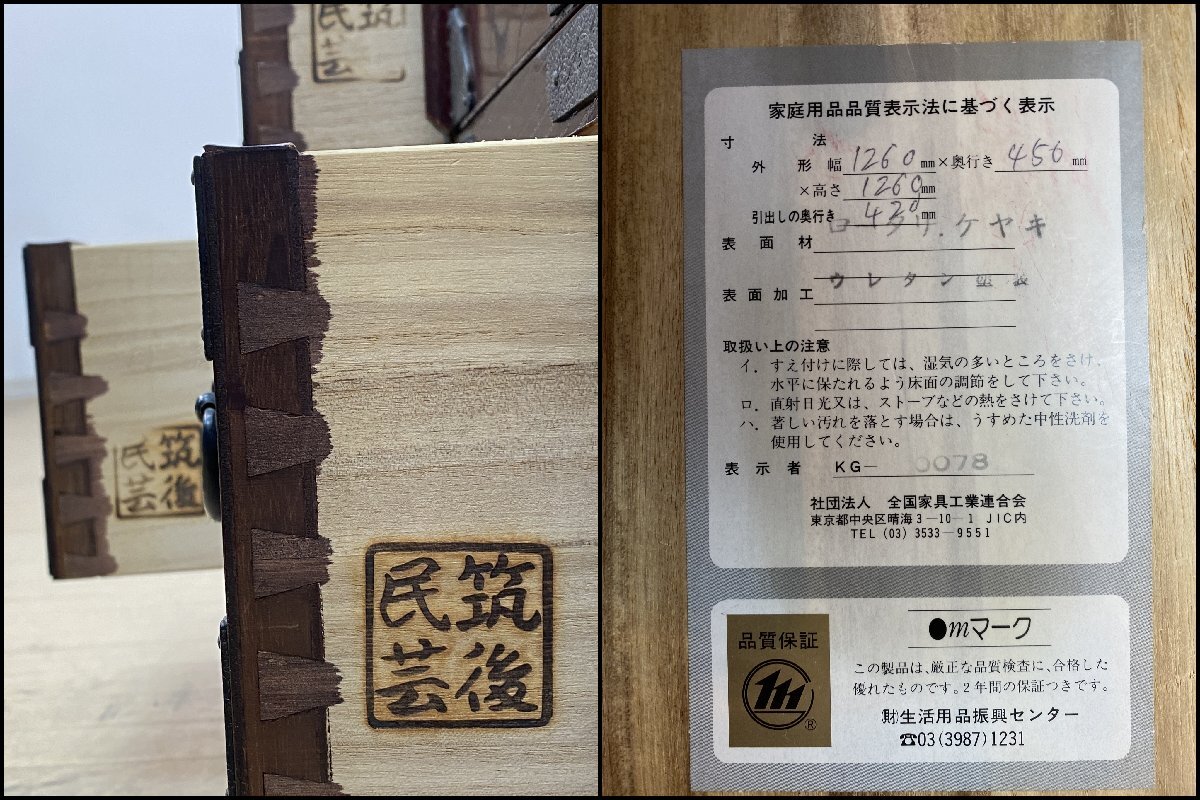 筑
民
芸
筑後
民芸
筑後
民芸
家庭用品品質表示法に基づく表示
寸法
外形 幅 1260 mm×奥行き 450 mm
×高さ 1260 mm
引出しの奥行き 420 mm
表面材 ケヤキ
表面加工 ウレタン塗装
取扱い上の注意
イ. すえ付けに際しては、湿気の多いところをさけ、
水平に保たれるよう床面の調節をして下さい。
ロ. 直射日光又は、ストーブなどの熱をさけて下さい。
ハ. 著しい汚れを落とす場合は、うすめた中性洗剤を
使用してください。
表示者 KG― 0078
社団法人 全国家具工業連合会
東京都中央区晴海3―10―1 JIC内
TEL (03) 3533―9551
品質保証
m
®
●mマーク
この製品は、厳正な品質検査に、合格した
優れたものです。2年間の保証つきです。
㈶生活用品振興センター
☎03(3987)1231